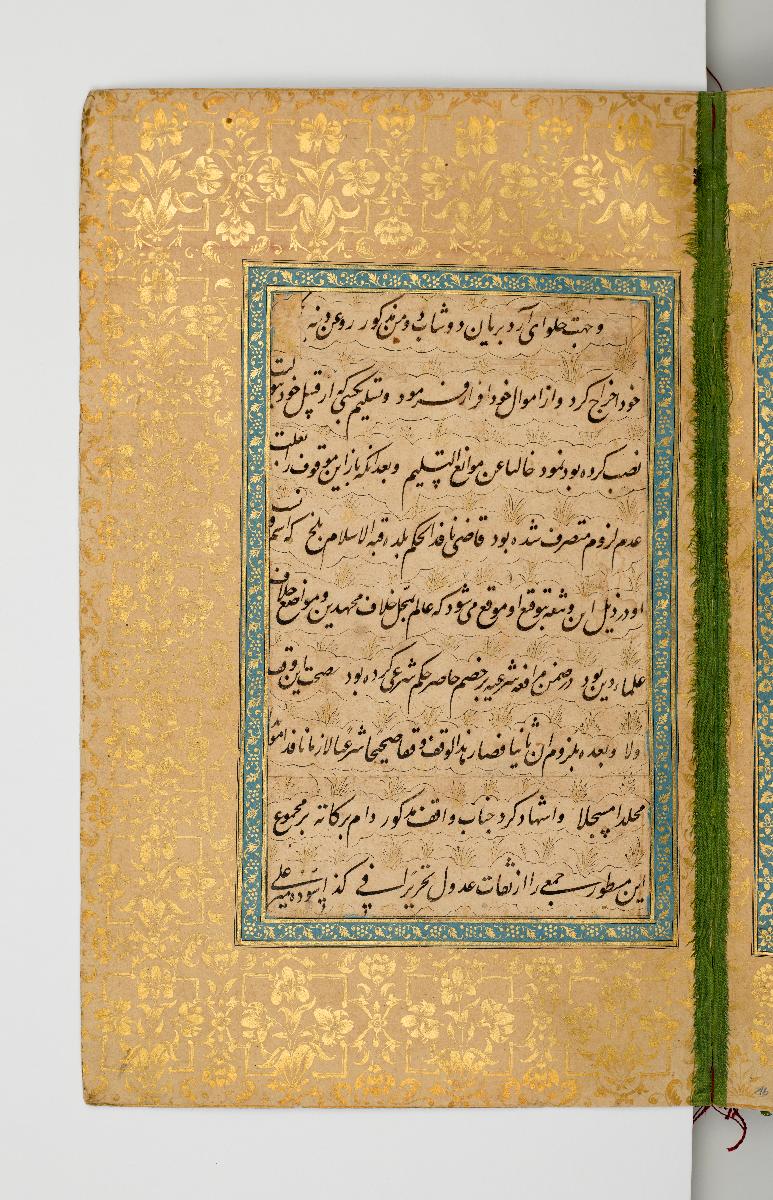 وجهت حلوای آرد بریان دوشاب دو من مذکور روغن دنبه
خود اخراج کرد و از اموال خود افراز فرمود و تسلیم کسی که از قبل خود بتولیت
نصب کرده بود نمود خالیا عن موانع التسلیم و بعد آنکه باز این موقوف را بعلت
عدم لزوم متصرف شده بود قاضی نافذ الحکم بلده قبة الاسلام بلخ که اسم و
او در ذیل این وثیقه بتوقیع او موقع می شود که عالم بمحل خلاف مجتهدین و مواضع خلاف
علماء دین بود در ضمن مرافعه شرعیه بر خصم حاضر حکم شرعی کرده بود بصحت این وقف
اولا و بعده بلزوم آن ثانیا فصار هذا الوقف وقفا صحیحا شرعیا لازما نافذا مؤبدا
مخلدا مسجلا و اشهاد کرد جناب واقف مذکور دام برکاته بر مجموع
این مسطور جمعی را از ثقات عدول تحریرا فی کذا سوده میر علی